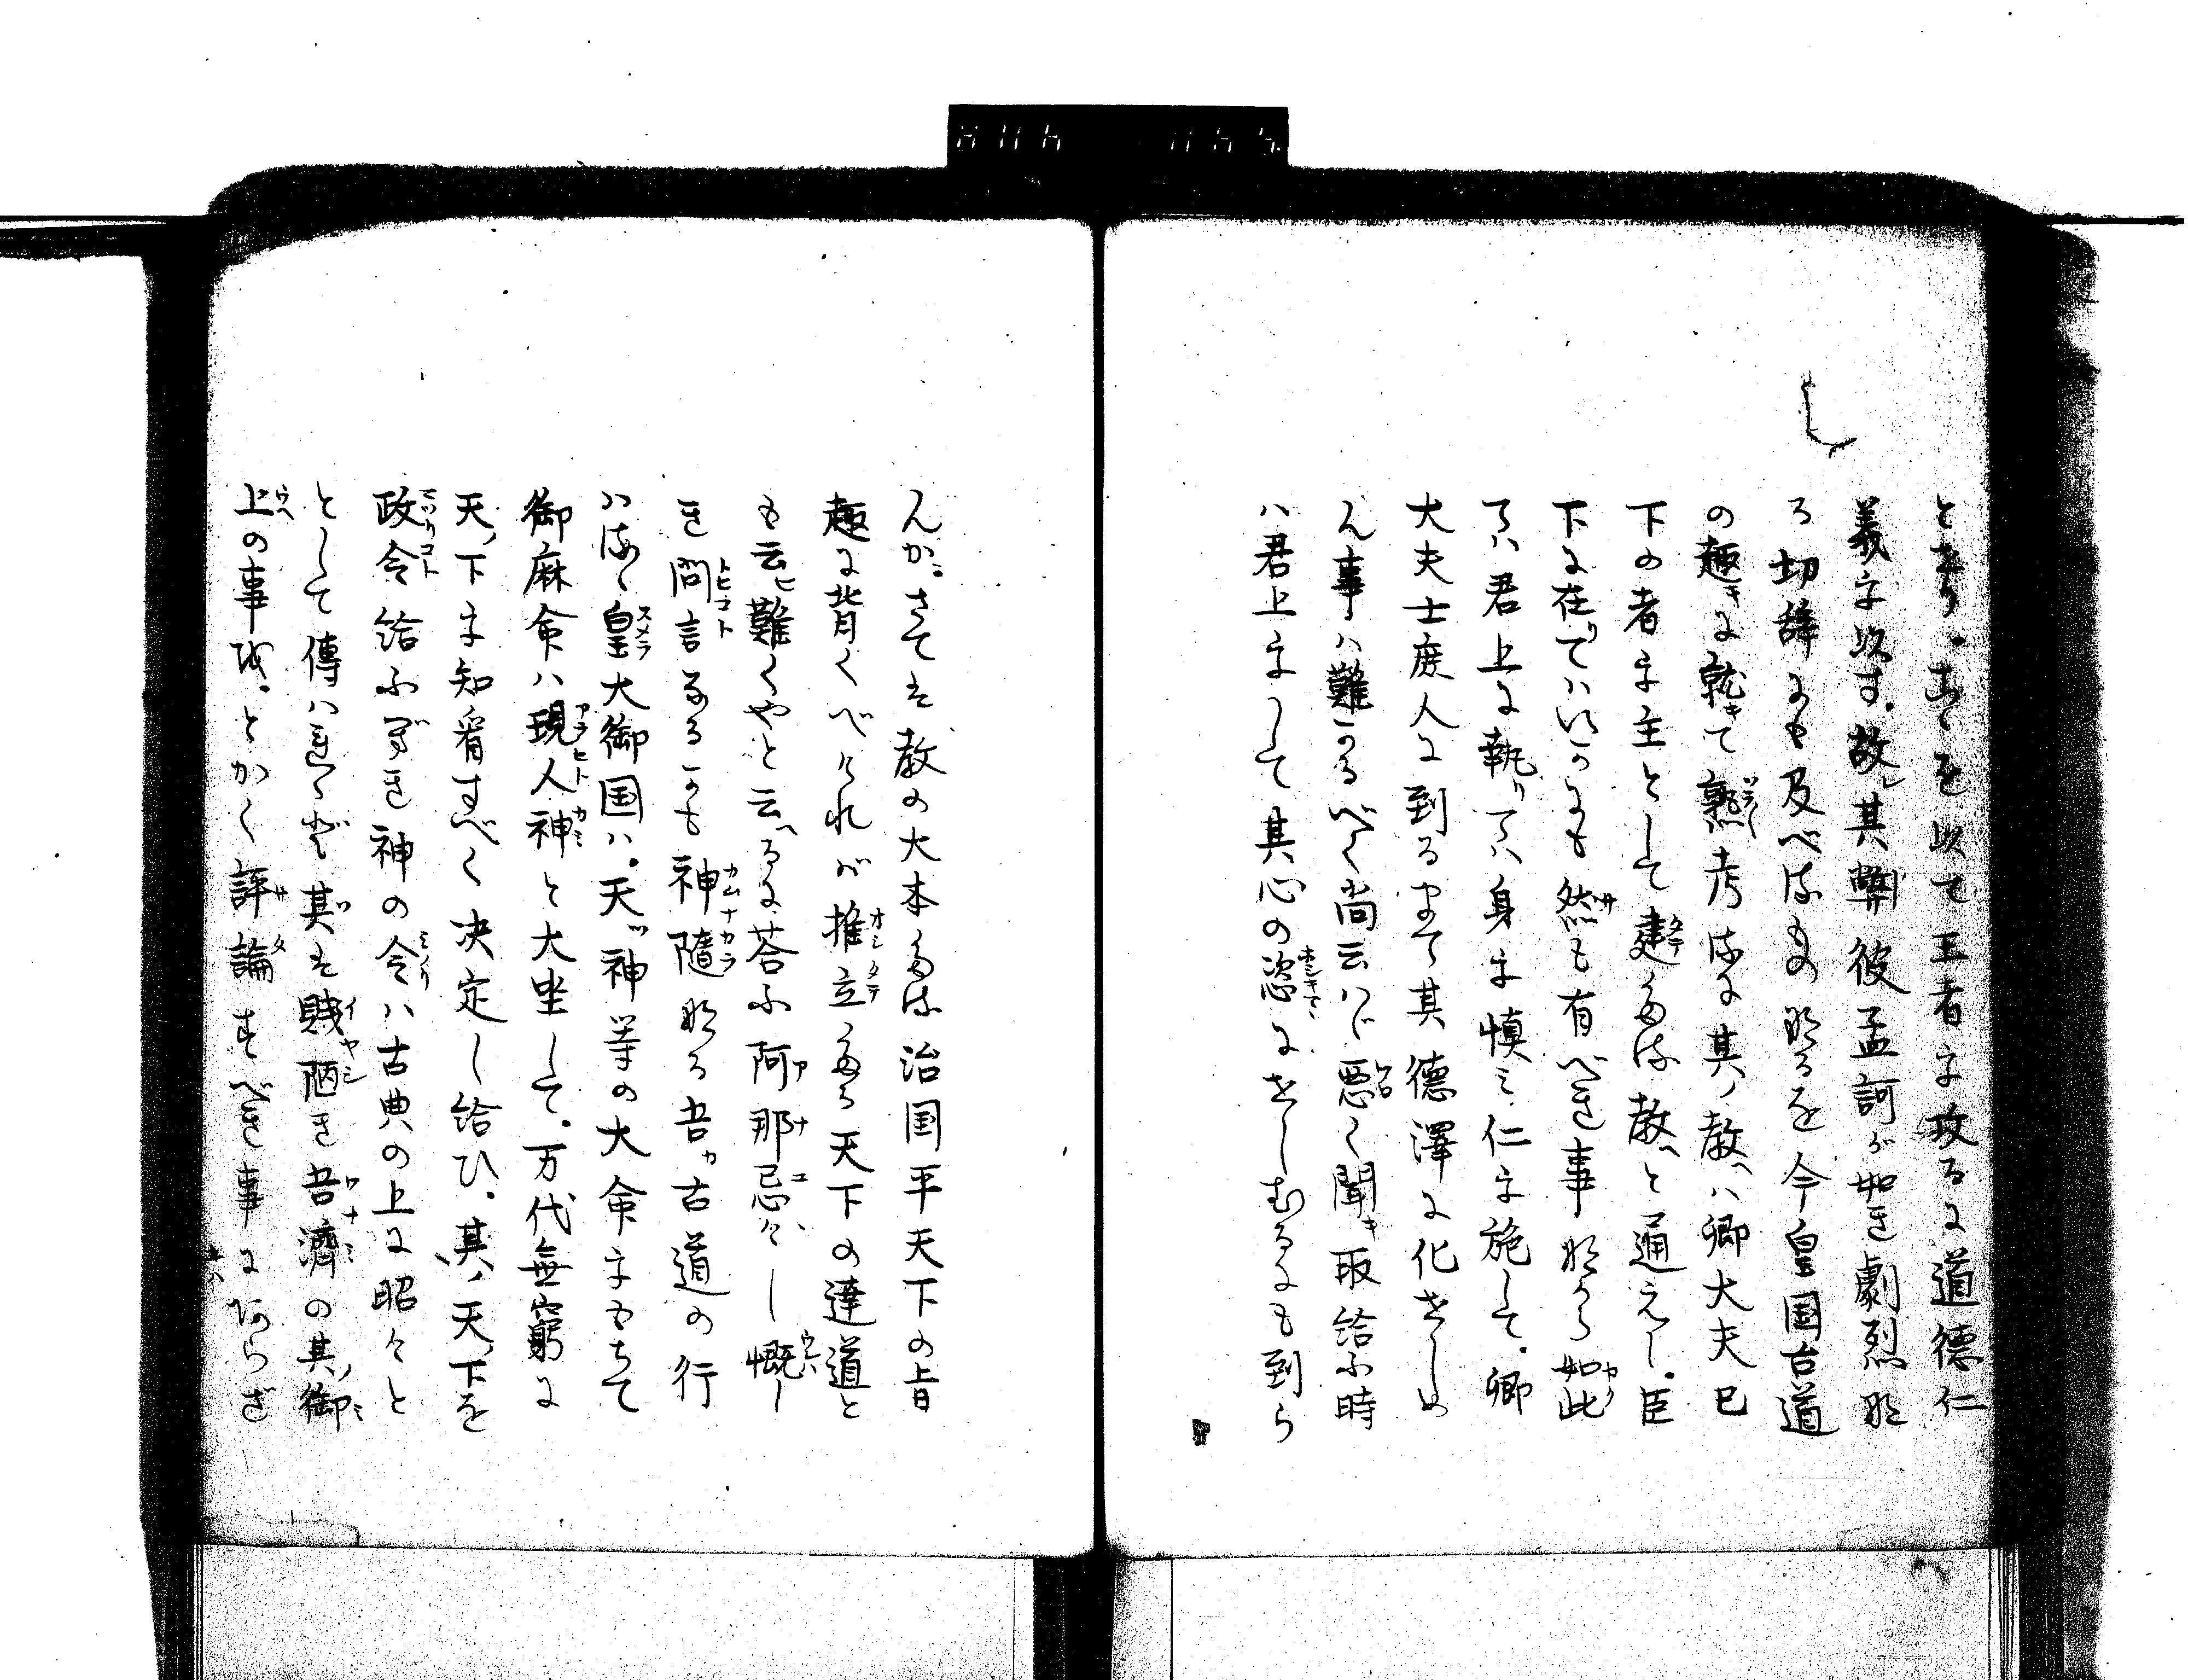 し
とき有。あくを以て王者を攻るに道徳仁
義を以す。故レ其弊彼孟訶が如き劇烈な
る切諌にも及べるものなるを今皇国古道
の趣きに就きて熟考るに其ノ教ヘハ卿大夫已
下の者を主として建たる教ヘと通えし。臣
下に在てハいかにも然も有べき事ながら如此
てハ君上に執りてハ身を慎ミ仁を施して。卿
大夫士庶人に到るまで其徳澤に化せしめ
ん事ハ難かるべく尚云ハヾ悪く聞キ取給ふ時
ハ君上をして其心の恣にせしむるにも到ら
んか。さてハ教の大本たる治国平天下の旨
趣に背くべけれバ推立たる天下の達道と
も云ヒ難くやと云ヘるに荅ふ阿那忌々し慨し
き問言なるかも神随なる吾ガ古道の行
ハるゝ皇大御国ハ。天ツ神等の大命をもちて
御麻命ハ現人神と大坐して。万代無窮に
天ノ下を知看すべく决定し給ひ。其ノ天ノ下を
政令給ふべき神の令ハ古典の上に昭々と
として傳ハれゝど其を賤陋き吾濟の其ノ御
上の事を。とかく評論すべき事にあらざ